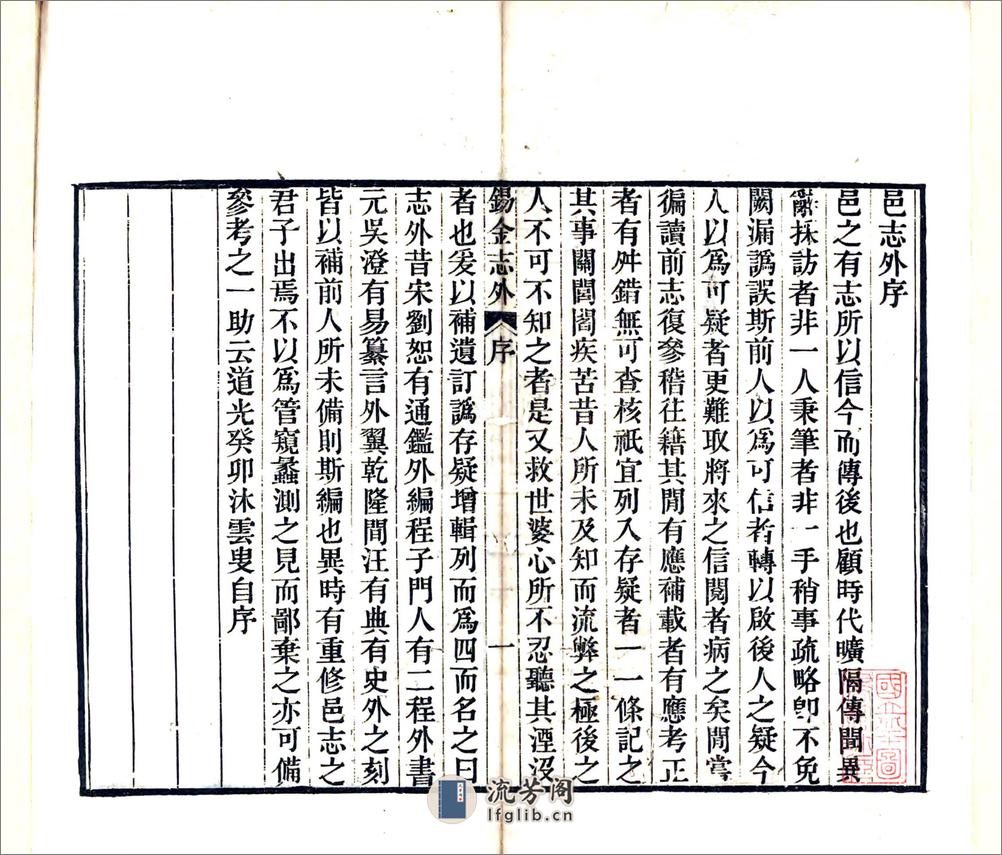 邑志外序
邑之有志所以信今而傳後也顧時代曠隔傳聞異
辭採訪者非一人秉筆者非一手稍事疏略卽不免
闕漏譌誤斯前人以爲可信者轉以啟後人之疑今
人以爲可疑者更難取將來之信閱者病之矣閒嘗
徧讀前志復參稽往籍其閒有應補載者有應考正
者有舛錯無可查核祇宜列入存疑者一一條記之
其事關閭閻疾苦昔人所未及知而流弊之極後之
人不可不知之者是又救世婆心所不忍聽其湮沒
錫金志外 序 一
者也爰以補遺訂譌存疑增輯列而爲四而名之曰
志外昔宋劉恕有通鑑外編程子門人有二程外書
元吳澄有易纂言外翼乾隆間汪有典有史外之刻
皆以補前人所未備則斯編也異時有重修邑志之
君子出焉不以爲管窺蠡測之見而鄙棄之亦可備
參考之一助云道光癸卯沐雲叟自序
流芳阁
lfglib.cn